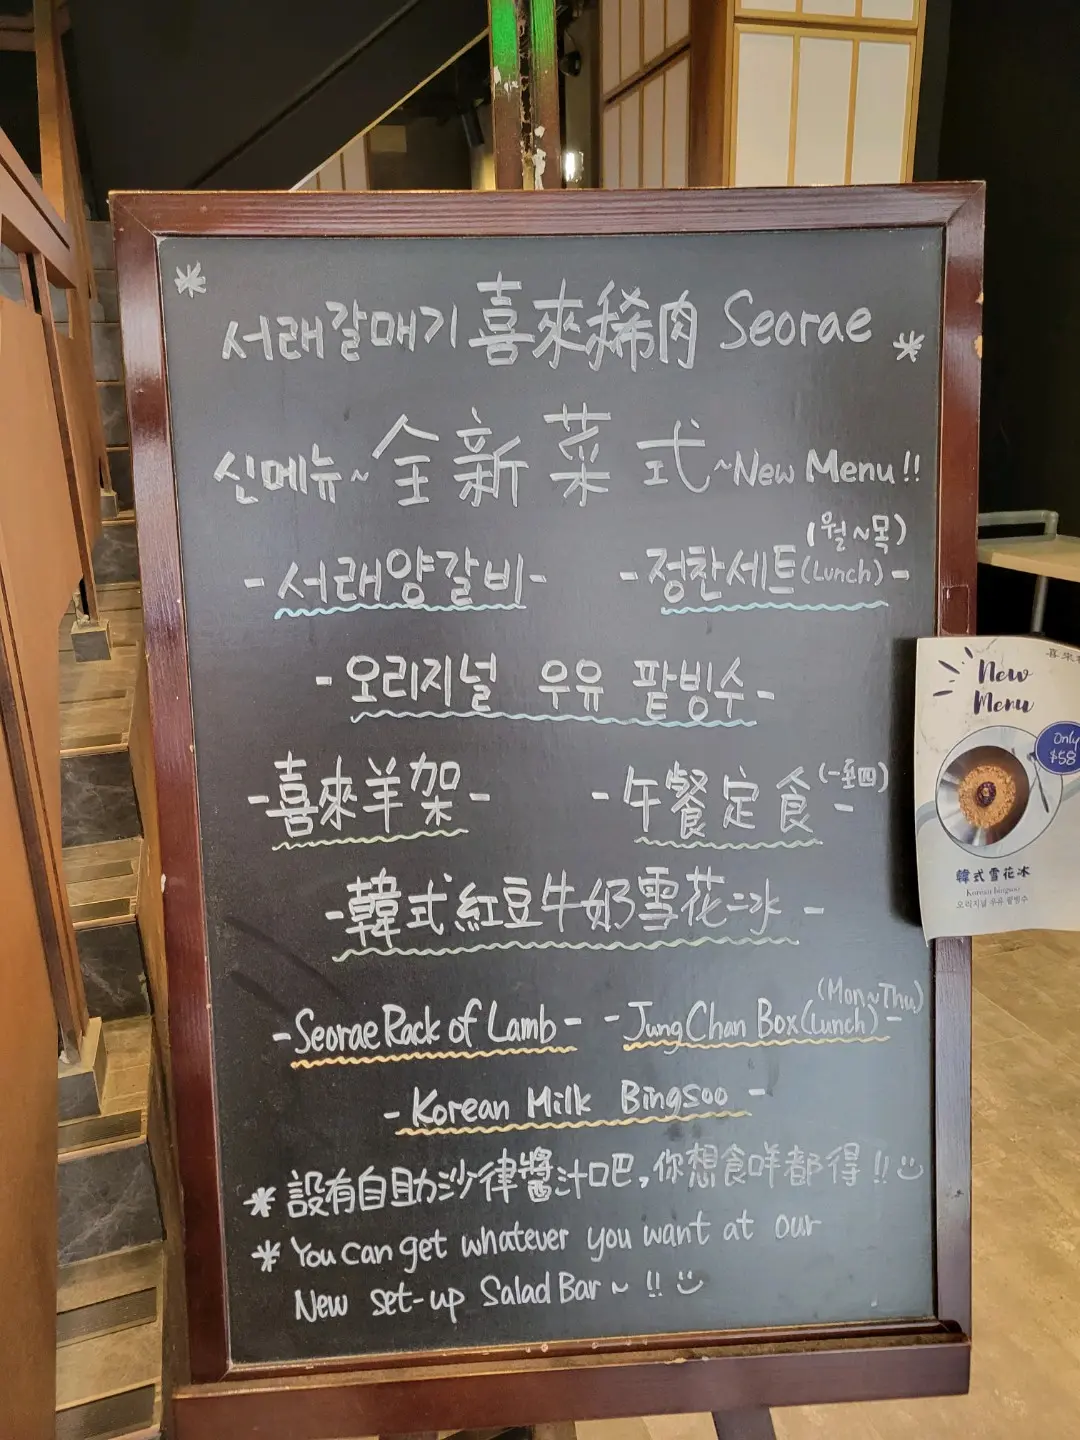 * 서래갈매기 喜來稀肉 Seorae *
신메뉴~全新菜式~New Menu!!
(월~목)
-서래양갈비- -정찬세트(Lunch)-
-오리지널 우유 팥빙수-
-喜來羊架- -午餐定食(一至四)-
-韓式紅豆牛奶雪花冰-
(Mon~Thu)
-Seorae Rack of Lamb- -JungChan Box(Lunch)-
-Korean Milk Bingsoo-
* 設有自助沙律醬汁吧,你想食咩都得!!
* You can get whatever you want at our
New set-up Salad Bar~!!
喜來
New
Menu
Only
$58
韓式雪花冰
Korean bingsoo
오리지널 우유 팥빙수